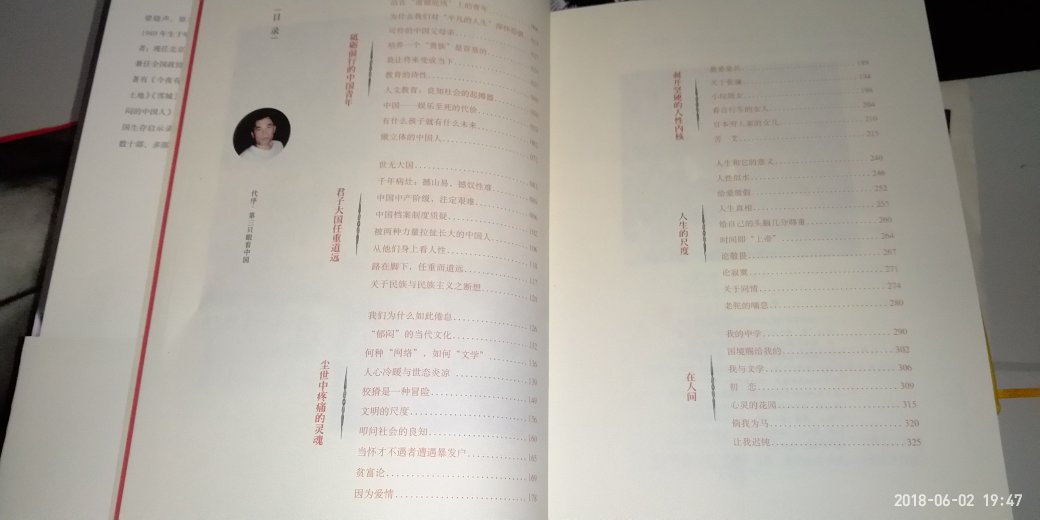 梁晓声，原
1949年生于哈
者；现任北京
兼任全国政协
著有《今夜有
土地》《雪城》
闷的中国人》
国生存启示录
数十部、多部
目录
代序：第三只眼看中国
砥砺前行的中国青年
为什么我们对“平凡的人生”深怀恐惧
可怜的中国父母亲
培养一个“贵族”是容易的
就让将来变成当下
教育的诗性
人文教育：良知社会的起搏器
中国——娱乐至死的代价
有什么孩子就有什么未来
做立体的中国人
君子大国任重道远
世无大国
千年病灶：撼山易，撼奴性难
中国中产阶级，注定艰难
中国档案制度质疑
被两种力量拉扯长大的中国人
从他们身上看人性
路在脚下，任重而道远
关于民族与民族主义之断想
尘世中疼痛的灵魂
我们为什么如此倦怠 126
“郁闷”的当代文化 132
何种“网络”，如何“文学” 136
人心冷暖与世态炎凉 139
狡猾是一种冒险 149
文明的尺度 156
叩问社会的良知 160
当怀才不遇者遭遇暴发户 165
贫富论 169
因为爱情 178
剥开坚硬的人性内核
189
194
198
看自行车的女人 204
日本穷人家的女儿 210
苦艾 215
人生的尺度
人生和它的意义 240
人性似水 246
给爱放假 252
人生真相 255
给自己的头脑几分尊重 260
时间即“上帝” 264
论敬畏 267
论寂寞 271
关于同情 274
老驼的喘息 280
在人间
我的中学 290
困境赐给我的 302
我与文学 306
初恋 309
心灵的花园 315
倘我为马 320
让我迟钝 325
2018-06-02 19:47